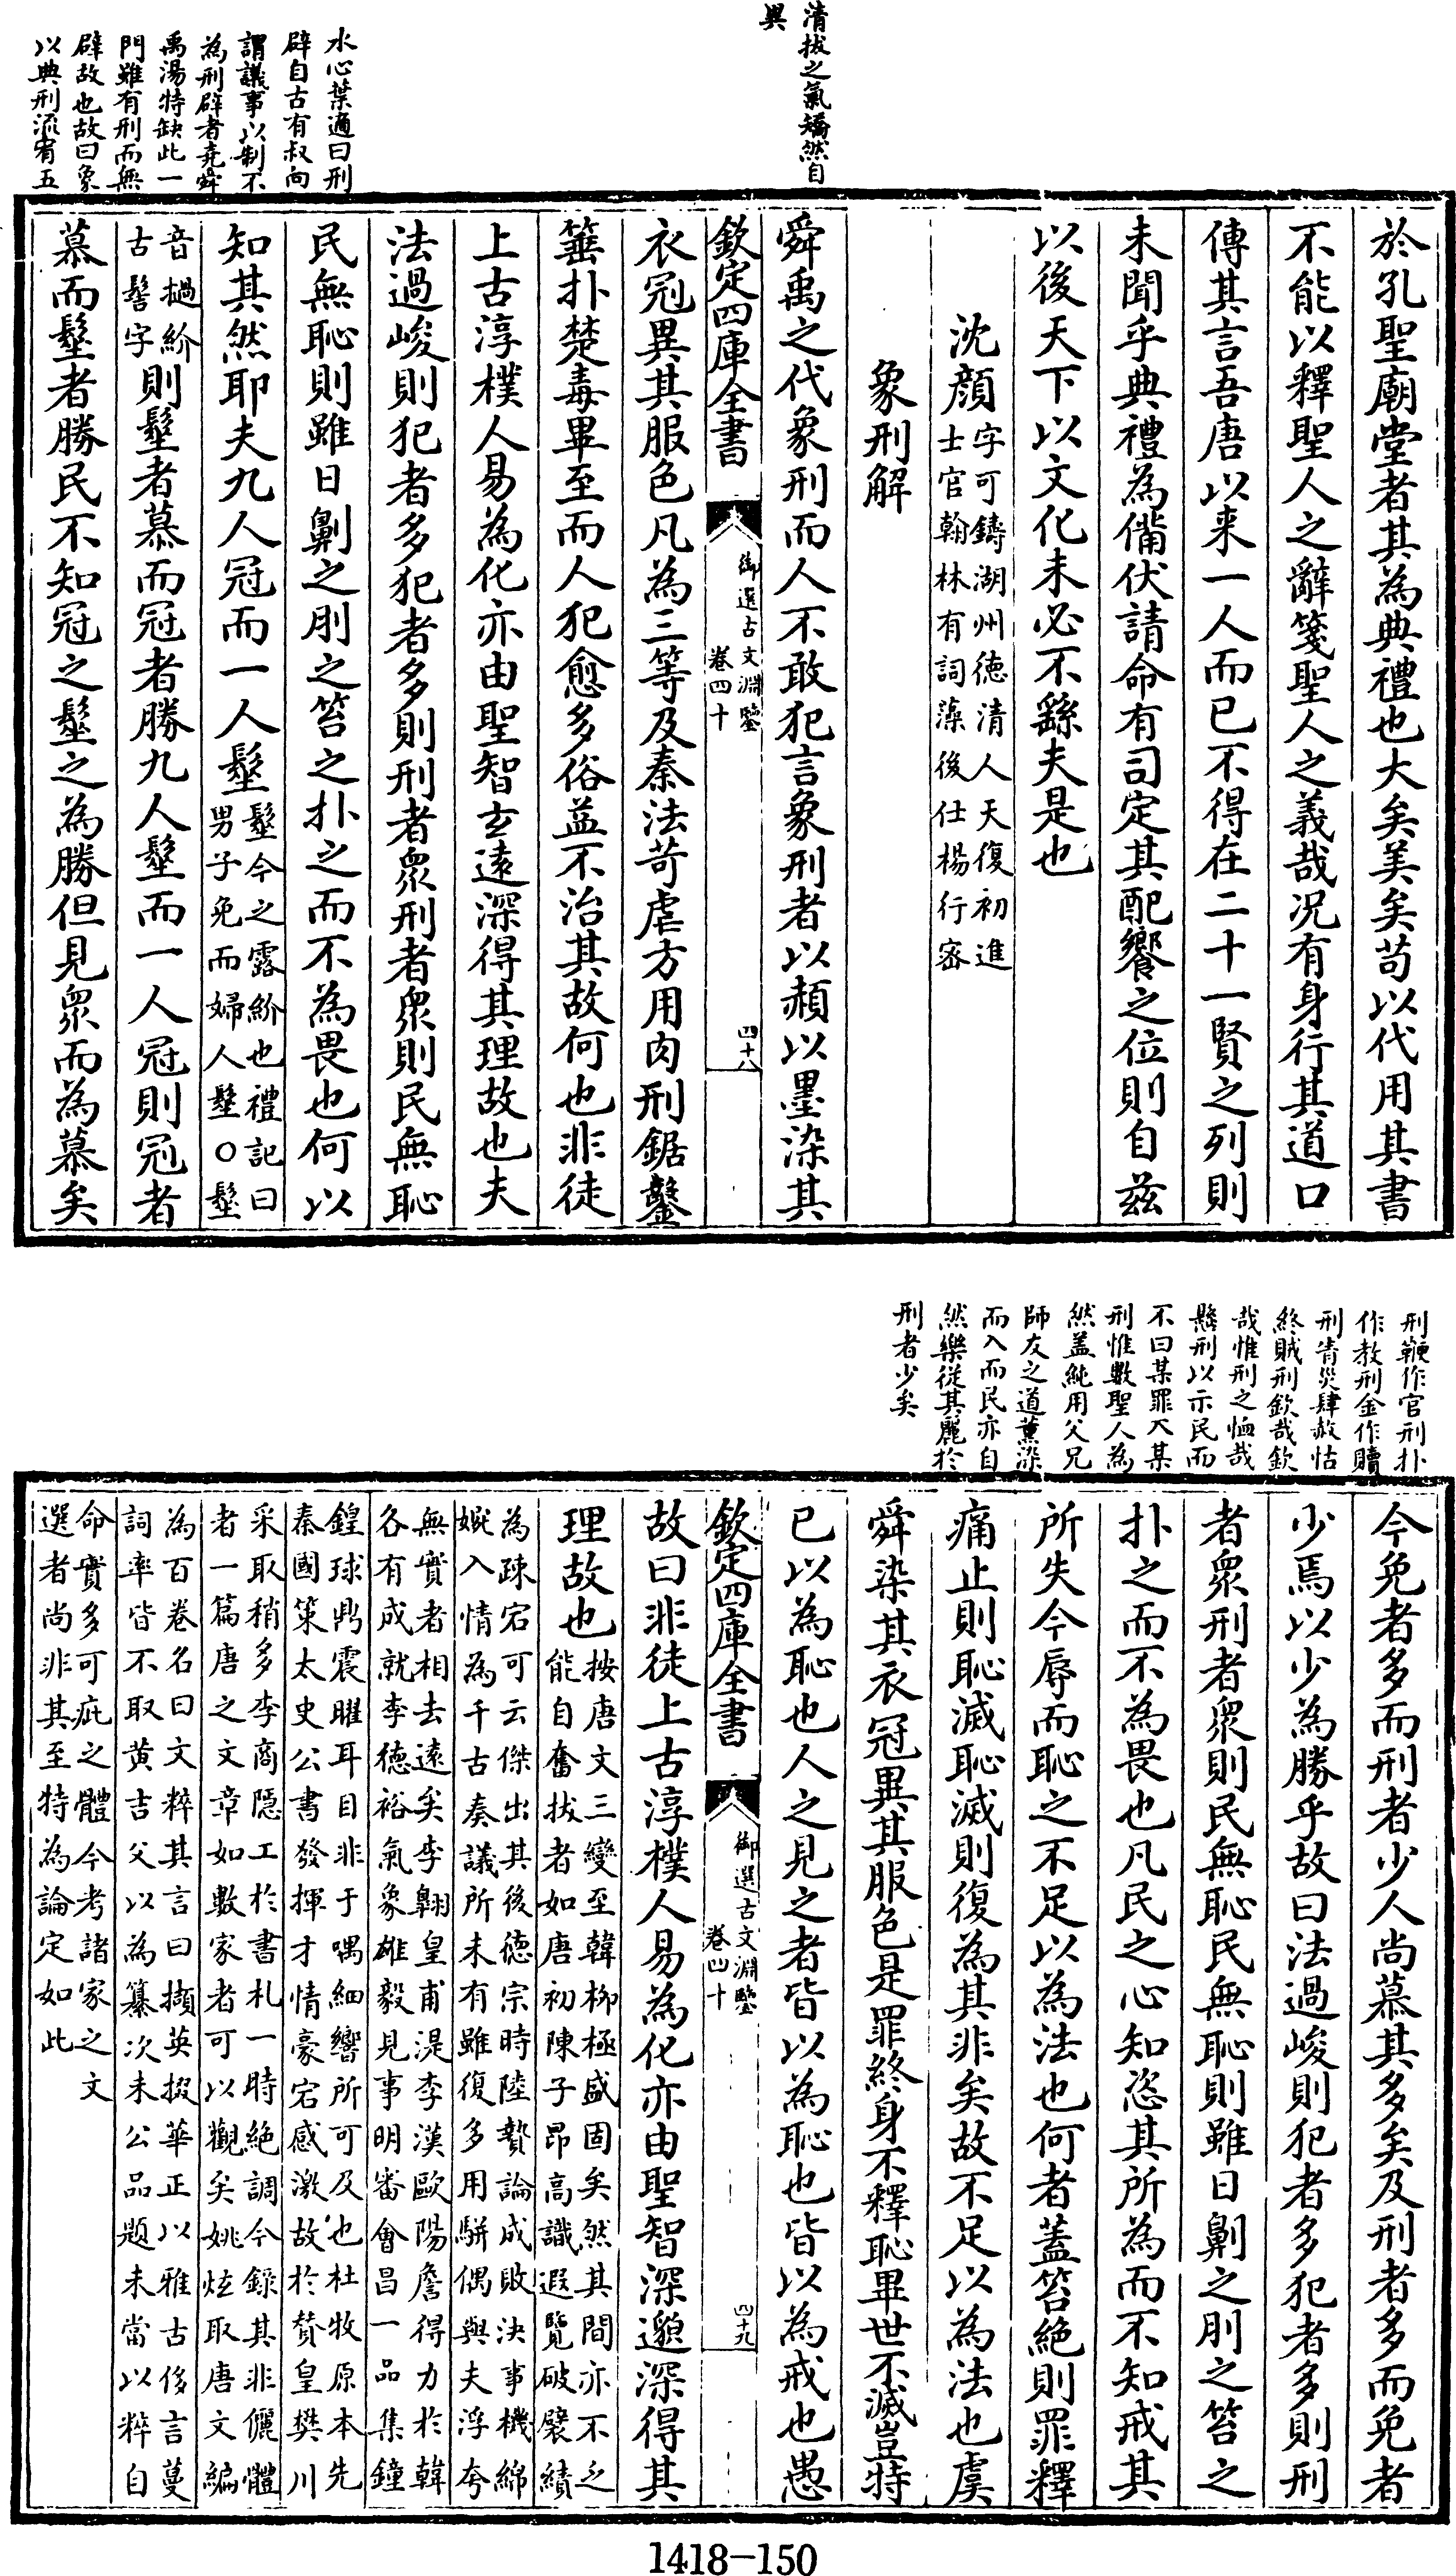 清拔之氣矯然自
異
水心葉適曰刑
辟自古有叔向
謂議事以制不
為刑辟者堯舜
禹湯特缺此一
門雖有刑而無
辟故也故曰象
以典刑流宥五
於孔聖廟堂者其為典禮也大矣美矣苟以代用其書
不能以釋聖人之辭箋聖人之義哉况有身行其道口
傳其言吾唐以来一人而已不得在二十一賢之列則
未聞乎典禮為備伏請命有司定其配饗之位則自茲
以後天下以文化未必不繇夫是也
沈顔字可鑄湖州德清人天復初進
士官翰林有詞藻後仕楊行密
象刑解
舜禹之代象刑而人不敢犯言象刑者以赭以墨染其
欽定四庫全書
御選古文淵鑒
卷四十
四十八
衣冠異其服色凡為三等及秦法苛虐方用肉刑鋸鑿
箠扑楚毒畢至而人犯愈多俗益不治其故何也非徒
上古淳樸人易為化亦由聖智玄遠深得其理故也夫
法過峻則犯者多犯者多則刑者衆刑者衆則民無恥
民無恥則雖日劓之刖之笞之扑之而不為畏也何以
知其然耶夫九人冠而一人髽髽今之露紒也禮記曰
男子免而婦人髽○髽
音撾紒
古髻字則髽者慕而冠者勝九人髽而一人冠則冠者
慕而髽者勝民不知冠之髽之為勝但見衆而為慕矣
刑鞭作官刑扑
作教刑金作贖
刑眚災肆赦怙
終賊刑欽哉欽
哉惟刑之恤哉
懸刑以示民而
不曰某罪天某
刑惟數聖人為
然盖純用父兄
師友之道薫染
而入而民亦自
然樂從其麗於
刑者少矣
今免者多而刑者少人尚慕其多矣及刑者多而免者
少焉以少為勝乎故曰法過峻則犯者多犯者多則刑
者衆刑者衆則民無恥民無恥則雖日劓之刖之笞之
扑之而不為畏也凡民之心知恣其所為而不知戒其
所失今辱而恥之不足以為法也何者蓋笞絶則罪釋
痛止則恥滅恥滅則復為其非矣故不足以為法也虞
舜染其衣冠異其服色是罪終身不釋恥畢世不滅豈特
已以為恥也人之見之者皆以為恥也皆以為戒也愚
欽定四庫全書
御選古文淵鑒
卷四十
四十九
故曰非徒上古淳樸人易為化亦由聖智深邈深得其
理故也按唐文三變至韓柳極盛固矣然其間亦不乏
能自奮拔者如唐初陳子昂高識遐覽破襞績
為疎宕可云傑出其後德宗時陸贄論成敗決事機綿
娓入情為千古奏議所未有雖復多用駢偶與夫浮夸
無實者相去遠矣李翺皇甫湜李漢歐陽詹得力於韓
各有成就李德裕氣象雄毅見事明審會昌一品集鐘
鍠球鼎震耀耳目非于喁細響所可及也杜牧原本先
秦國策太史公書發揮才情豪宕感激故於贊皇樊川
采取稍多李商隱工於書札一時絶調今錄其非儷體
者一篇唐之文章如數家者可以觀矣姚炫取唐文編
為百卷名曰文粹其言曰擷英掇華正以雅古侈言蔓
詞率皆不取黄吉父以為纂次未公品題未當以粹自
命實多可疵之體今考諸家之文
選者尚非其至特為論定如此
1418-150